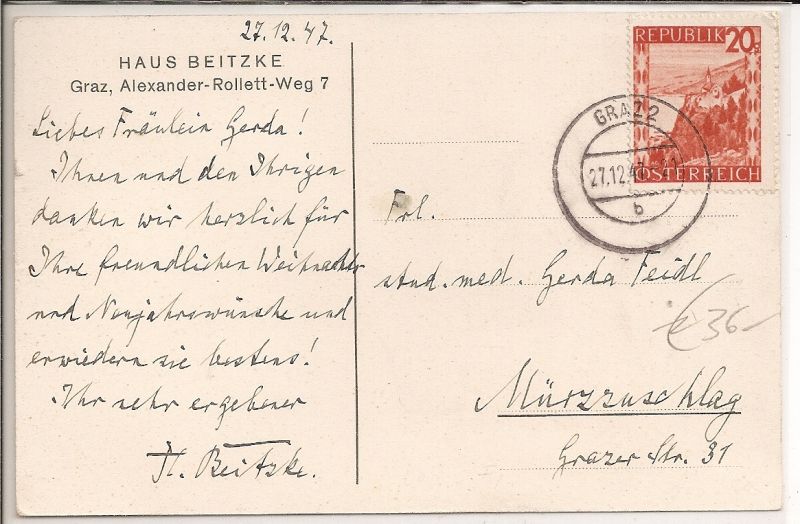 27.12.47.
HAUS BEITZKE
Graz, Alexander-Rollett-Weg 7
Liebes Fräulein Gerda!
Ihnen und den Ihrigen
danken wir herzlich für
Ihre freundlichen Weihnachts
und Neujahrswünsche und
erwiedern sie bestens!
Ihr sehr ergebener
H. Beitzke.
REPUBLIK 20g
ÖSTERREICH
GRAZ 2
27.12.47
b
Frl.
stud. med. Gerda Feidl
Mürzzuschlag
Grazer Str. 31
€ 36-